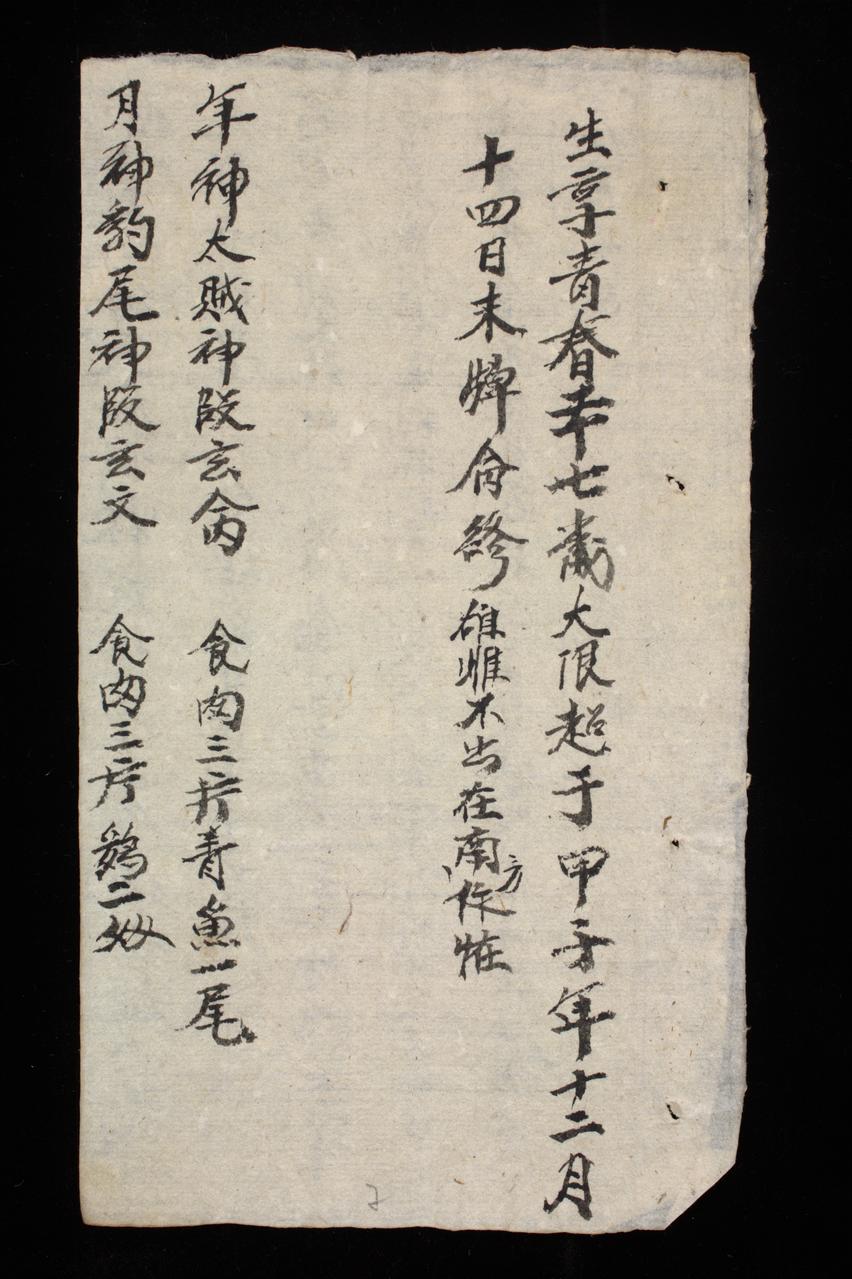 生享青春卆七歲大限超于甲子年十二月
十四日末牌侖終雄惟不出在南方作恠
年神太賊神段玄 食肉三片青魚一尾
月神豹尾神段玄文 食肉三片鷄二